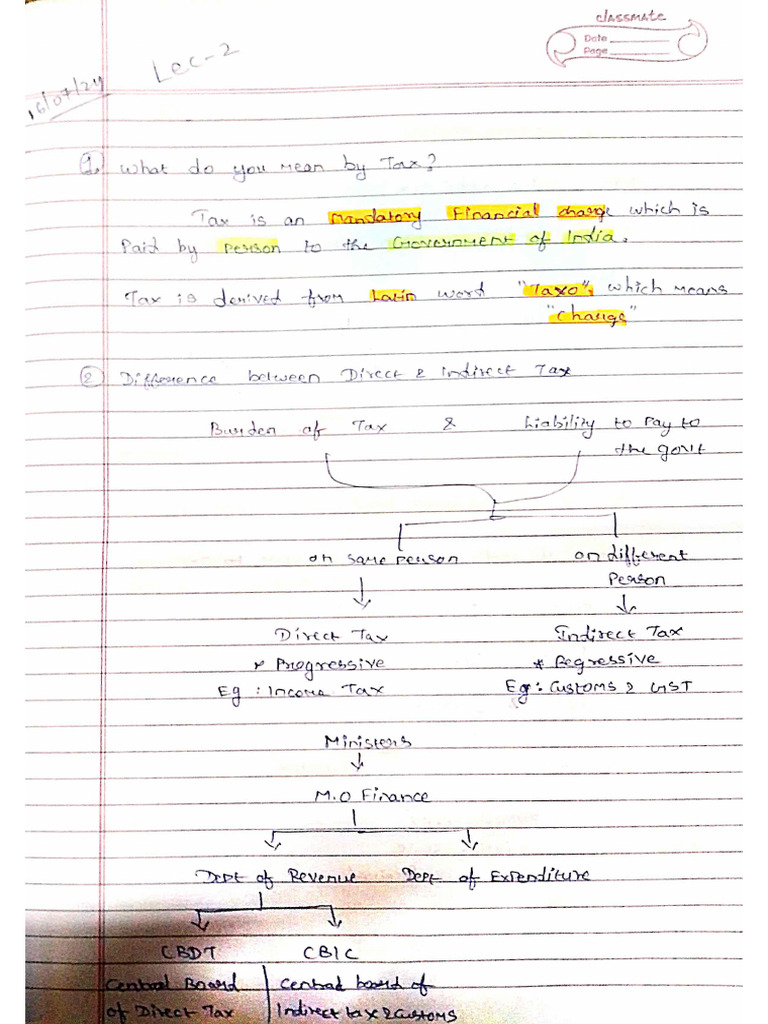 classmate
Date
Page
16/07/24
Lec-2
1. What do you mean by Tax?
Tax is an Mandatory Financial charge which is
Paid by person to the Government of India.
Tax is derived from Latin word "Taxo", which means
"Charge"
2 Difference between Direct & Indirect Tax
Burden of Tax & Liability to Pay to
the govt
on same person
on different
Person
Direct Tax
* Progressive
Eg : Income Tax
Indirect Tax
* Regressive
Eg: Customs & GST
Ministers
M.O Finance
Dept of Revenue Dept of Expenditure
CBDT CBIC
Central Board
of Direct Tax
Central board of
Indirect tax & customs